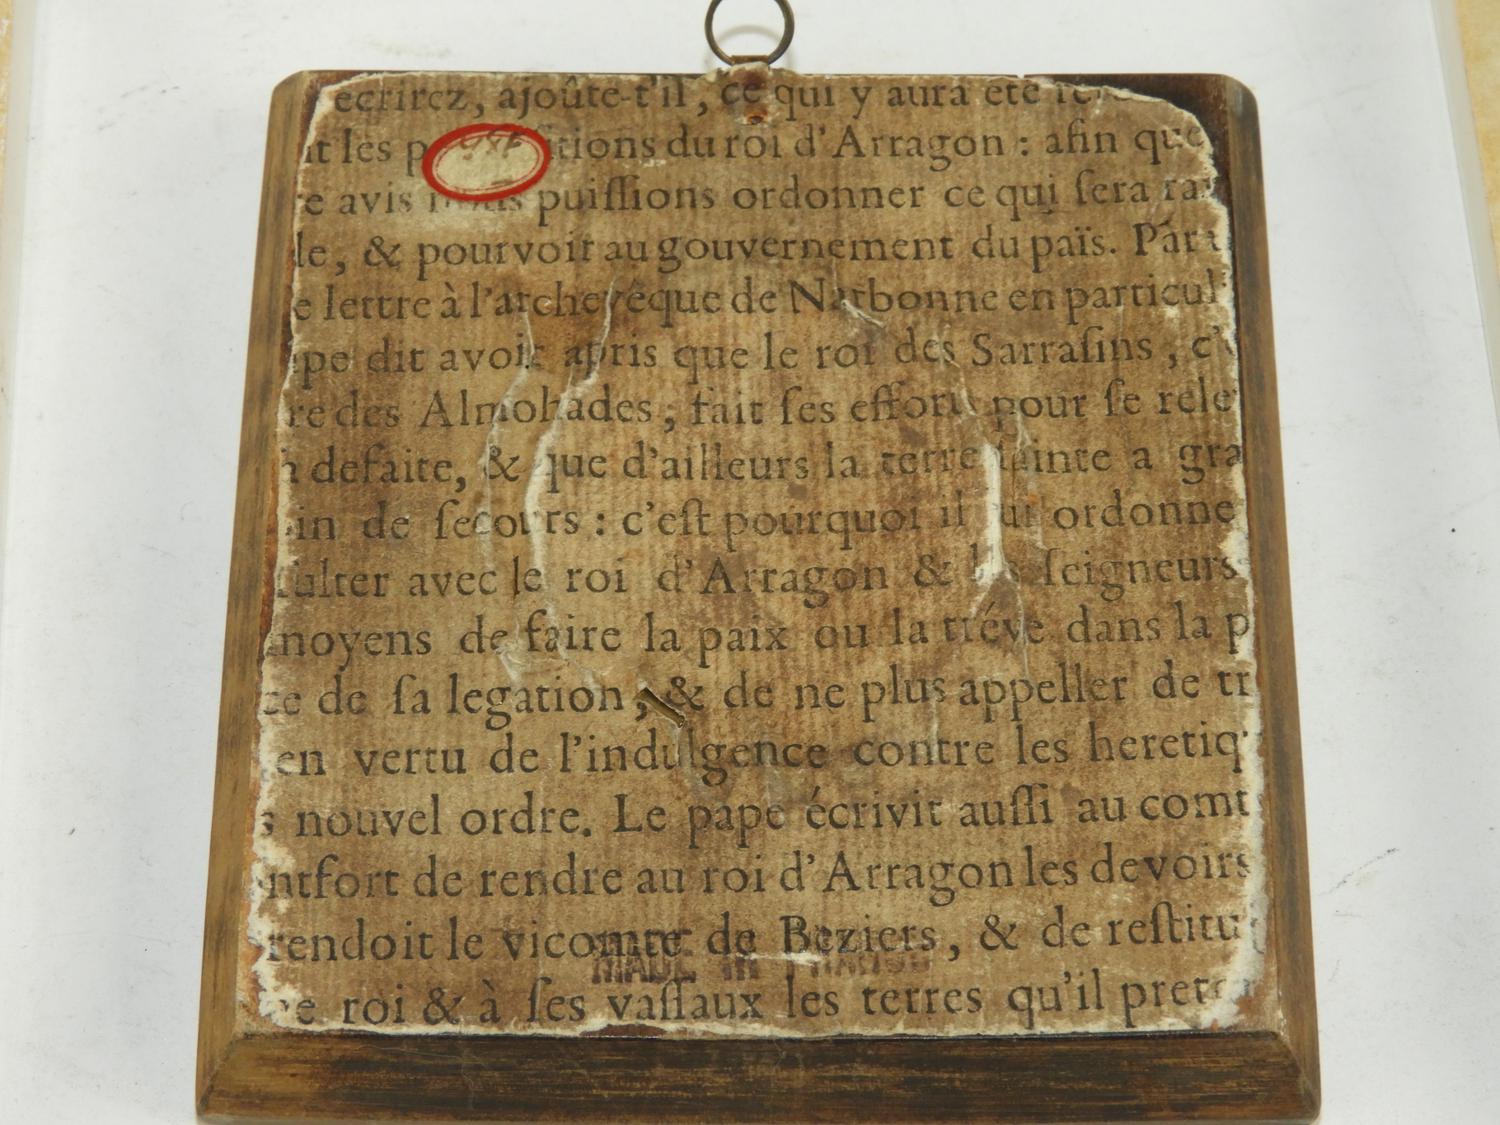 écrirez, ajoûte-t'il, ce qui y aura été
les p itions du roi d'Arragon : afin que
e avis nous puiſſions ordonner ce qui ſera
le, & pourvoir au gouvernement du païs. Par
e lettre à l'archevêque de Narbonne en particul
pe dit avoir apris que le roi des Sarraſins, c'
re des Almohades, fait ſes efforts pour ſe rele
defaite, & que d'ailleurs la terre ſainte a gra
in de ſecours : c'eſt pourquoi il lui ordonne
ſulter avec le roi d'Arragon & les ſeigneurs
moyens de faire la paix ou la tréve dans la p
ce de ſa legation, & de ne plus appeller de tr
en vertu de l'indulgence contre les heretiq
s nouvel ordre. Le pape écrivit auſſi au comt
ntfort de rendre au roi d'Arragon les devoirs
rendoit le vicomte de Beziers, & de reſtitu
MADE IN FRANCE
e roi & à ſes vaſſaux les terres qu'il pret